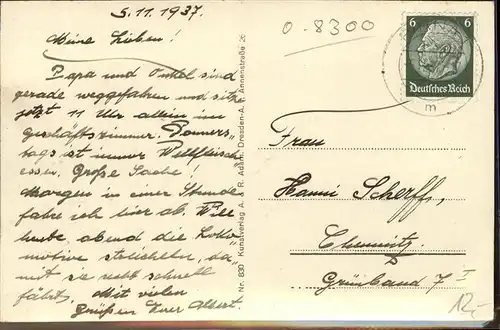 5.11.1937.
Meine Lieben!
Papa und Onkel sind
gerade weggefahren und sitze
jetzt 11 Uhr allein im
geschäftszimmer. Donners-
tags ist immer Wellfleisch
essen. Große Sache!
Morgen in einer Stunde
fahre ich hier ab. Will
heute abend die Loko-
motive streicheln, "da-
mit sie recht schnell
fährt. Mit vielen
Grüßen Euer Albert.
Nr. 830 Kunstverlag A. & R. Adam, Dresden-A., Annenstraße 26
0-8300
6 6
Deutsches Reich
m
Frau
Hanni Scherff,
Chemnitz
Grünband 7 I
12,-